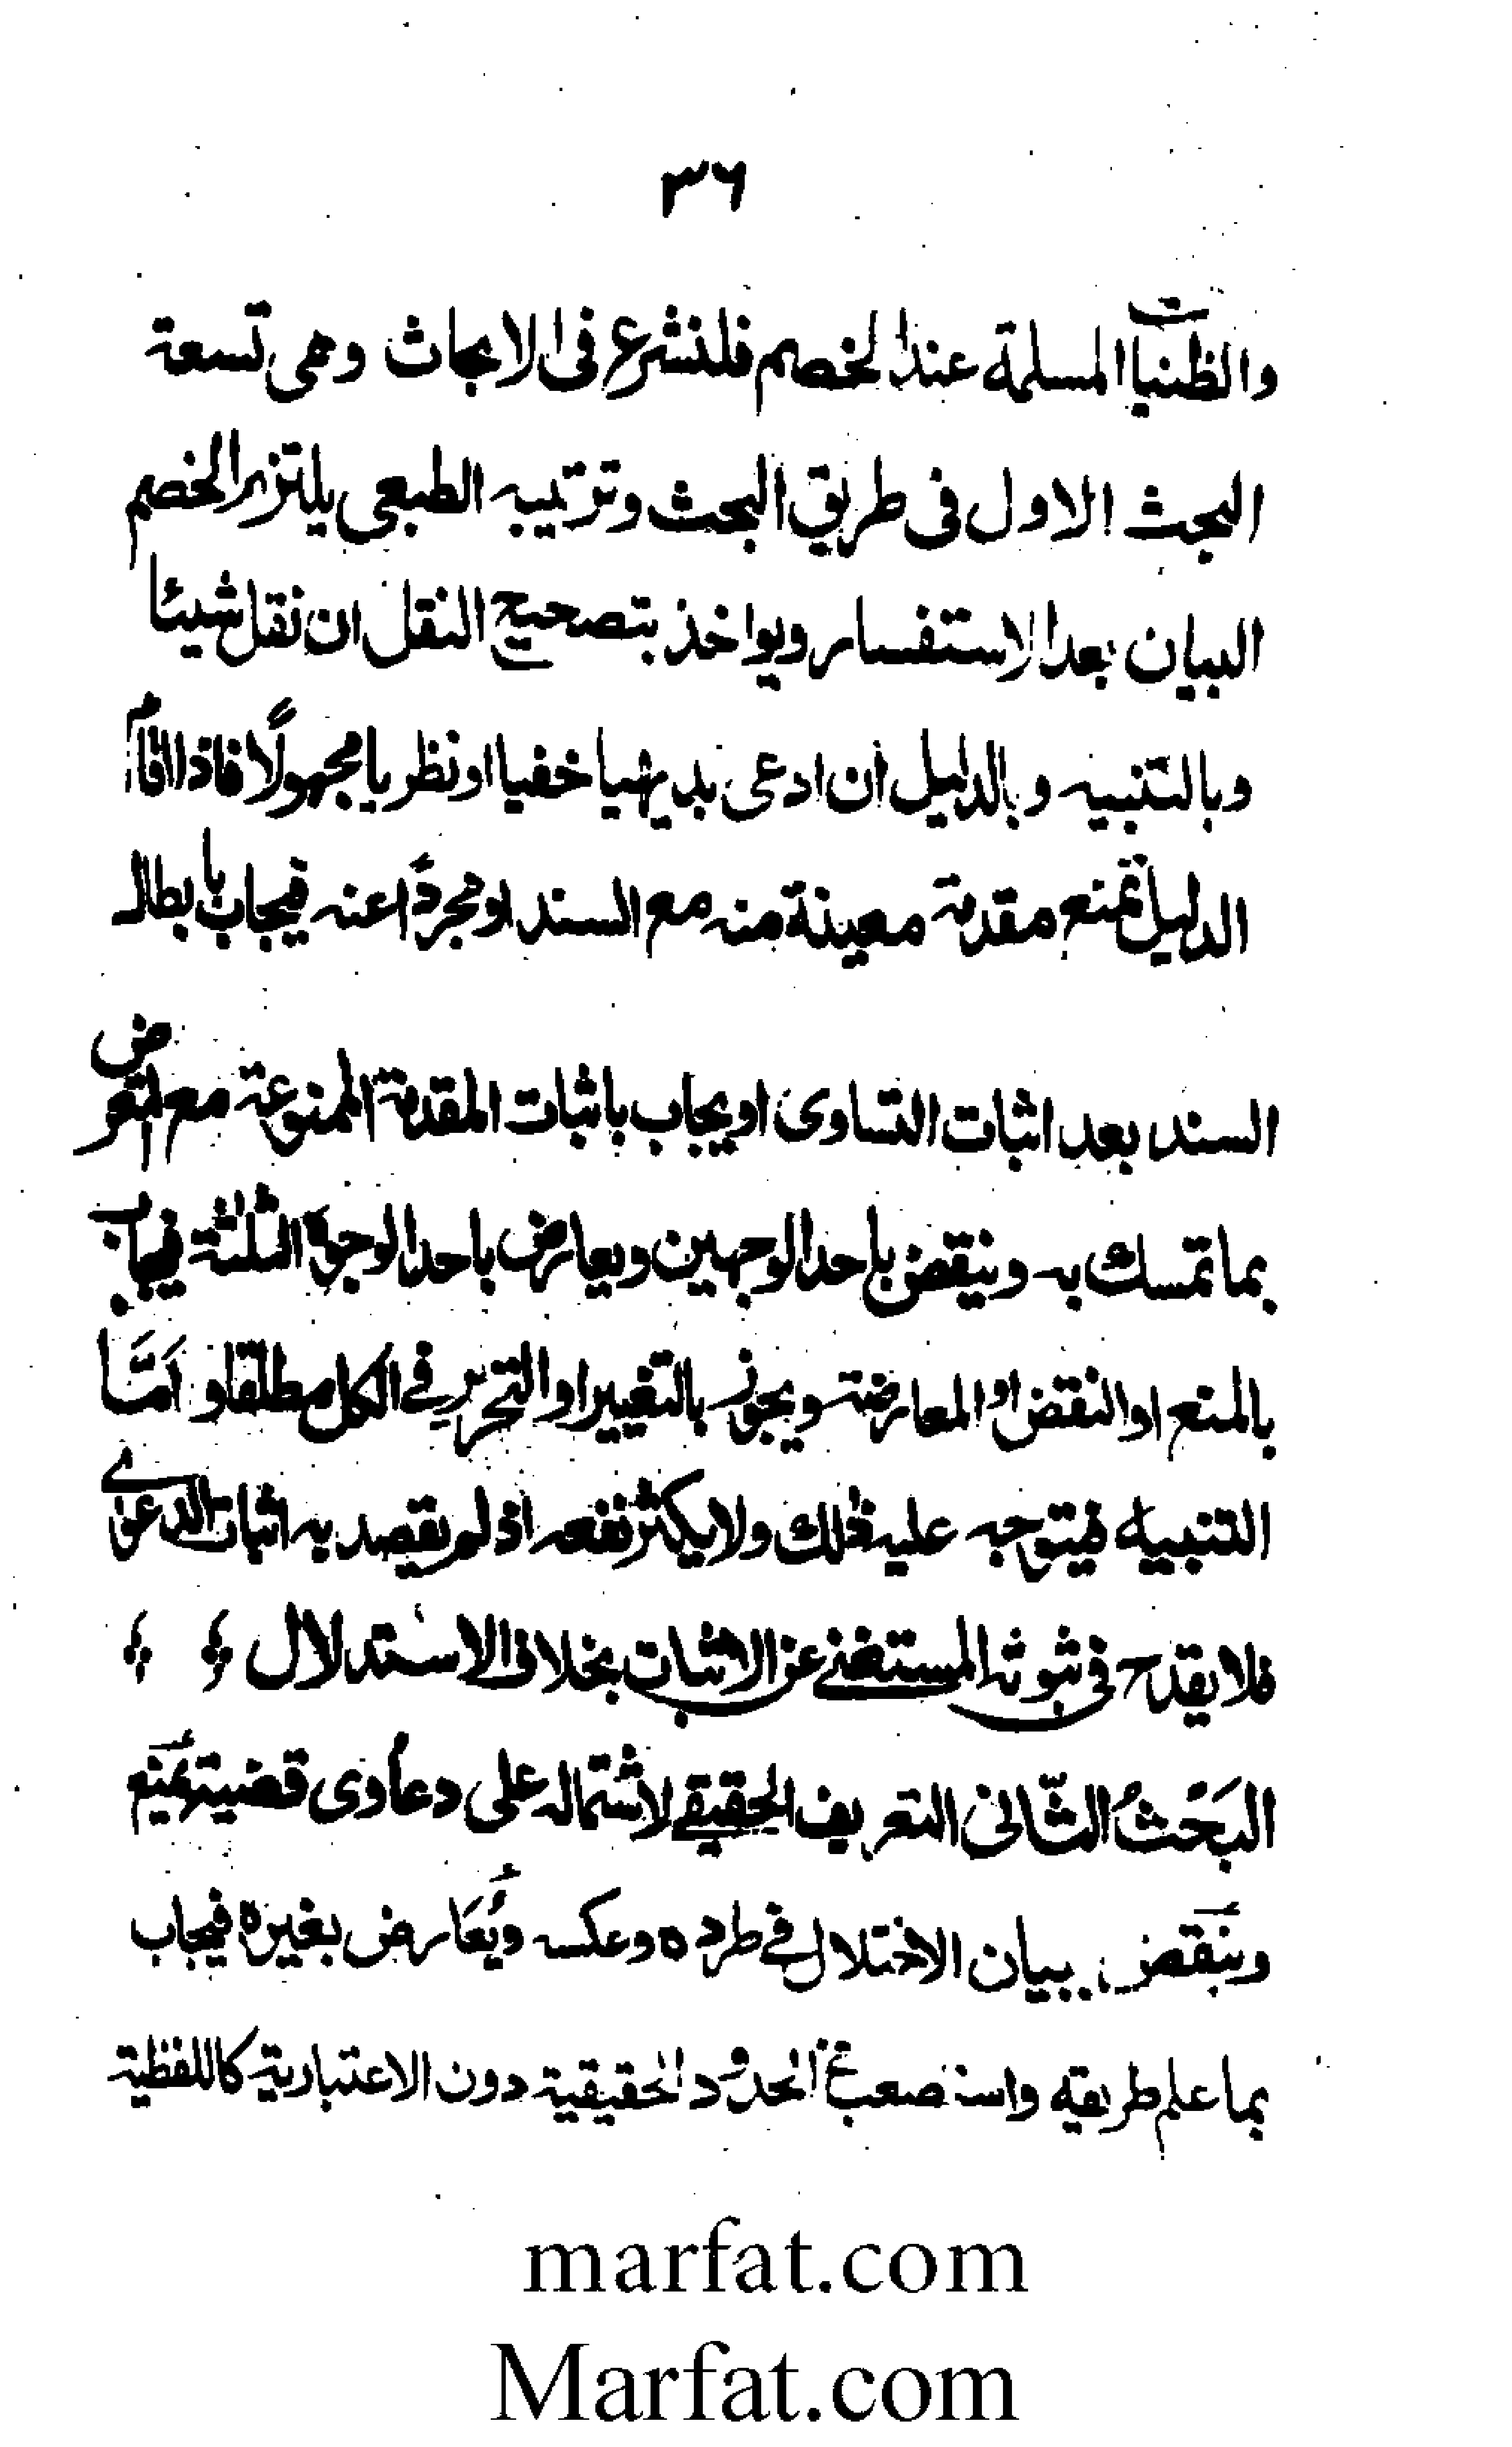 ٣٦
والظنيات المسلمة عند الخصم فلنشرع فى الابحاث وهى تسعة
البحث الاول فى طريق البحث وترتيبه الطبعى يلتزم الخصم
البيان بعد الاستفسار ويواخذ بتصحيح النقل ان نقل شيئا
وبالتنبيه وبالدليل ان ادعى بديهيا خفيا او نظريا مجهولًا فاذا اقام
الدليل تمنع مقدمة معينة منه مع السند او مجردًا عنه فيجاب بابطال
السند بعد اثبات التساوى او يجاب باثبات المقدمة الممنوعة مع التعرض
بما تمسك به وينقض باحد الوجهين ويعارض باحد الوجوه الثلثة فيجاب
بالمنع او النقض او المعارضة ويجوز بالتغيير او التحرير فے الكل مطلقا و اَمَّا
التنبيه فيتوجه عليه ذلك ولا يكثر نفعه اذ لم يقصد به اثبات الدعوى
فلا يقدح فى ثبوته المستغنے عن الاثبات بخلاف الاستدلال
البَحْثُ الثَّانى التعريف الحقيقے لاشتماله على دعاوى قضية يُمنع
وينقض ببيان الاختلال فے طرده وعكسه ويُعَارض بغيره فيجاب
بما علم طريقه واستصعب فى الحدود الحقيقية دون الاعتبارية كاللفظية
marfat.com
Marfat.com